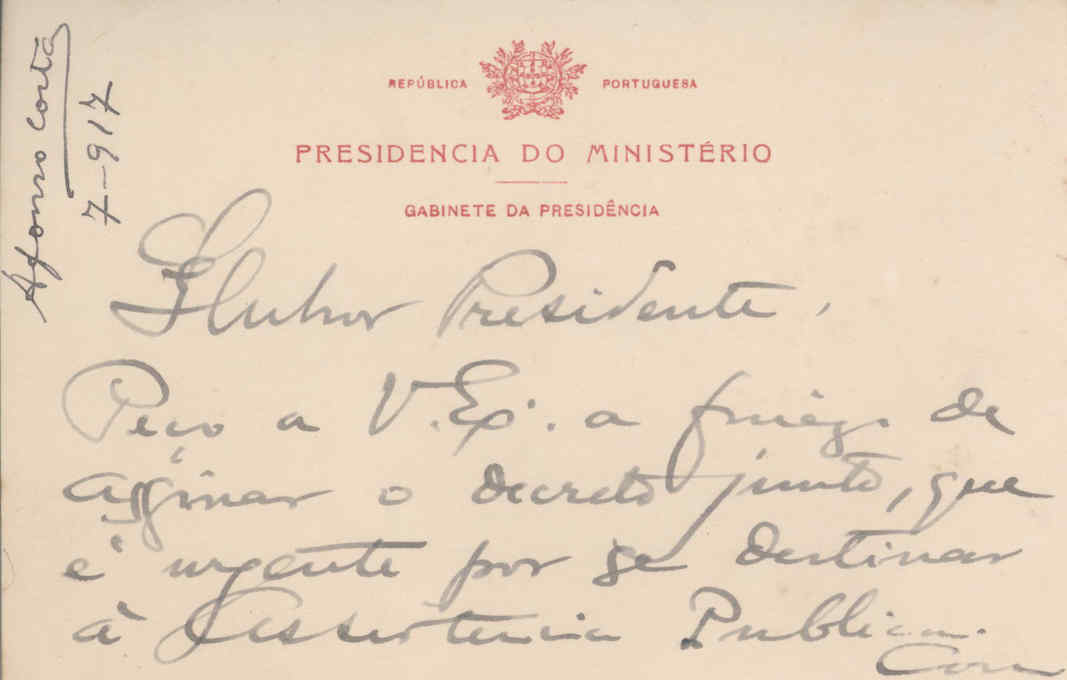 Afonso Costa
7-917
REPÚBLICA PORTUGUESA
PRESIDENCIA DO MINISTÉRIO
GABINETE DA PRESIDÊNCIA
Senhor Presidente,
Peço a V. Ex. a fineza de
assinar o decreto junto, que
é urgente por se destinar
à Assistencia Publica.
Com